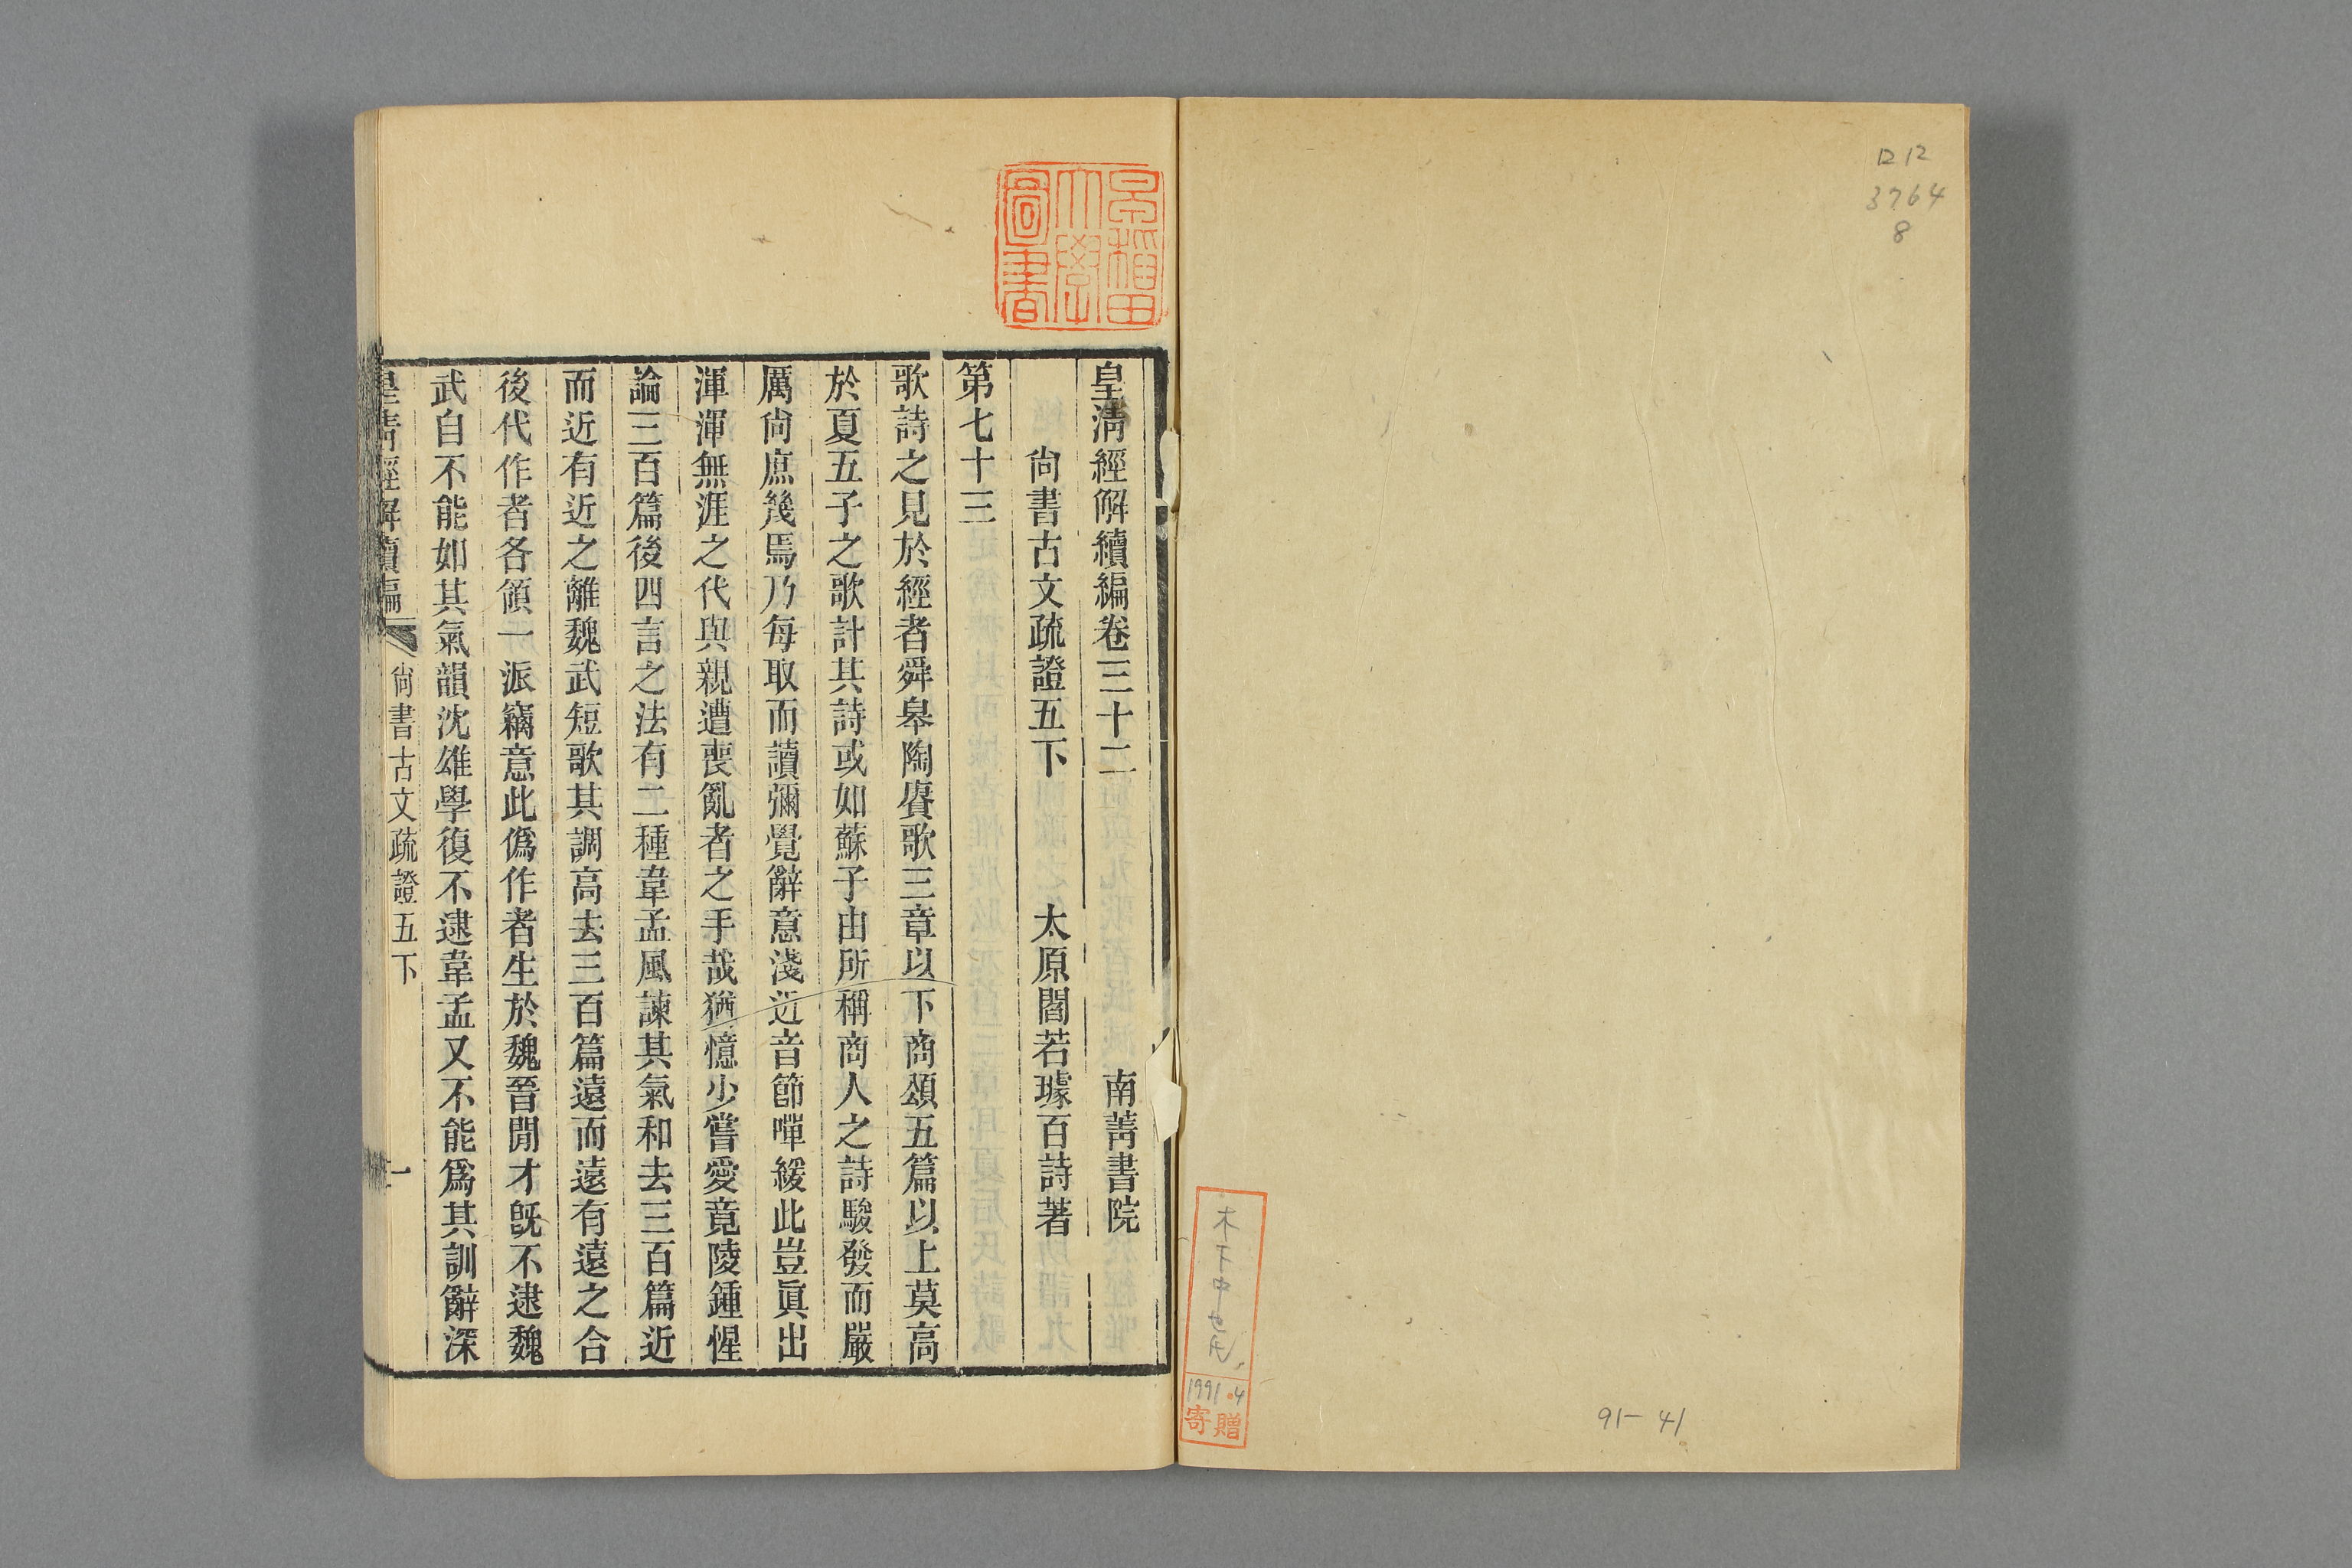 ロ12
3764
8
木下中也氏
1991.4
寄贈
91-41
早稲田
大學
圖書
皇淸經解續編卷三十二 南菁書院
尙書古文疏證五下 太原閻若璩百詩著
第七十三
歌詩之見於經者舜皋陶賡歌三章以下商頌五篇以上莫高
於夏五子之歌計其詩或如蘇子由所稱商人之詩駿發而嚴
厲尙庶幾焉乃每取而讀彌覺辭意淺近音節嘽緩此豈眞出
渾渾無涯之代與親遭喪亂者之手哉猶憶少嘗愛竟陵鍾惺
論三百篇後四言之法有二種韋孟風諫其氣和去三百篇近
而近有近之離魏武短歌其調高去三百篇遠而遠有遠之合
後代作者各領一派竊意此僞作者生於魏晉閒才旣不逮魏
武自不能如其氣韻沈雄學復不逮韋孟又不能爲其訓辭深
皇淸經解續編 尙書古文疏證五下 一